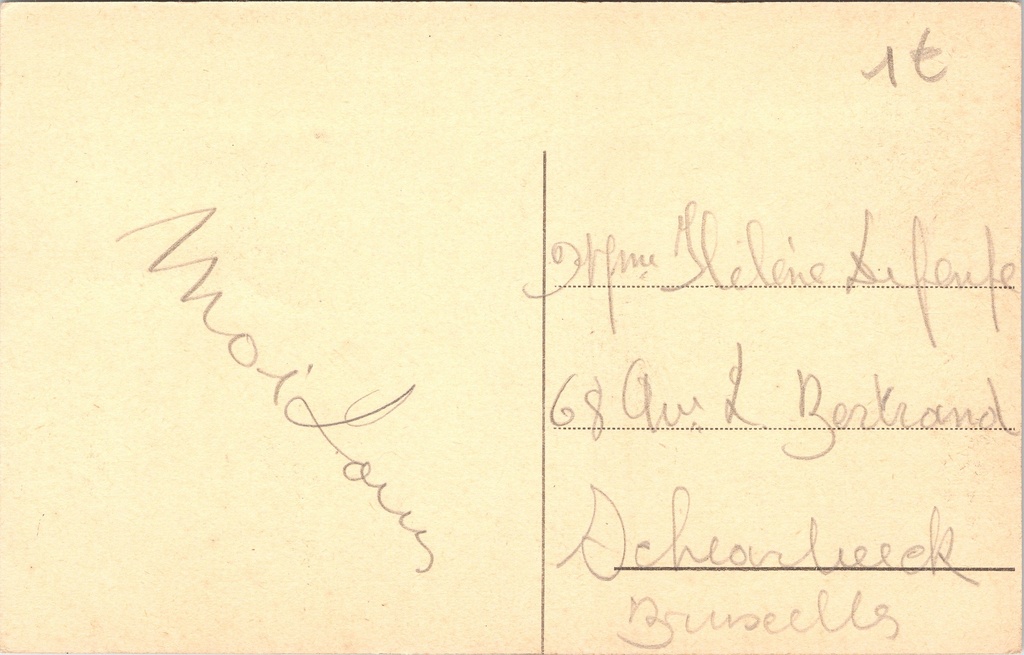 1 €
Moi Louis
Mme Hélène
68 Ave L Bertrand
Schearbeeck
Bruxelles